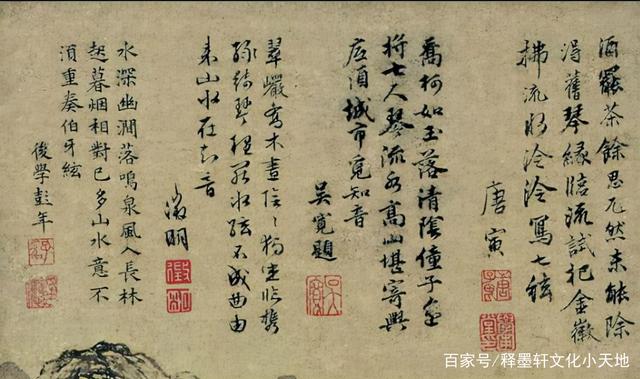 酒罷茶餘思兀然未能除
得舊琴緣臨流試把金徽
拂流水泠泠寫七絃
唐寅
喬柯如玉落清陰僮子
將七尺琴流水高山堪寄興
應須城市覓知音
吳寬題
翠巖喬木晝陰〻獨坐臨攜
綠綺琴絃不成曲由
來山水在知音
徵明
徵明
水深幽澗落鳴泉風入長林
起暮烟相對已多山水意不
須重奏伯牙絃
後學彭年
百家号/释墨轩文化小天地